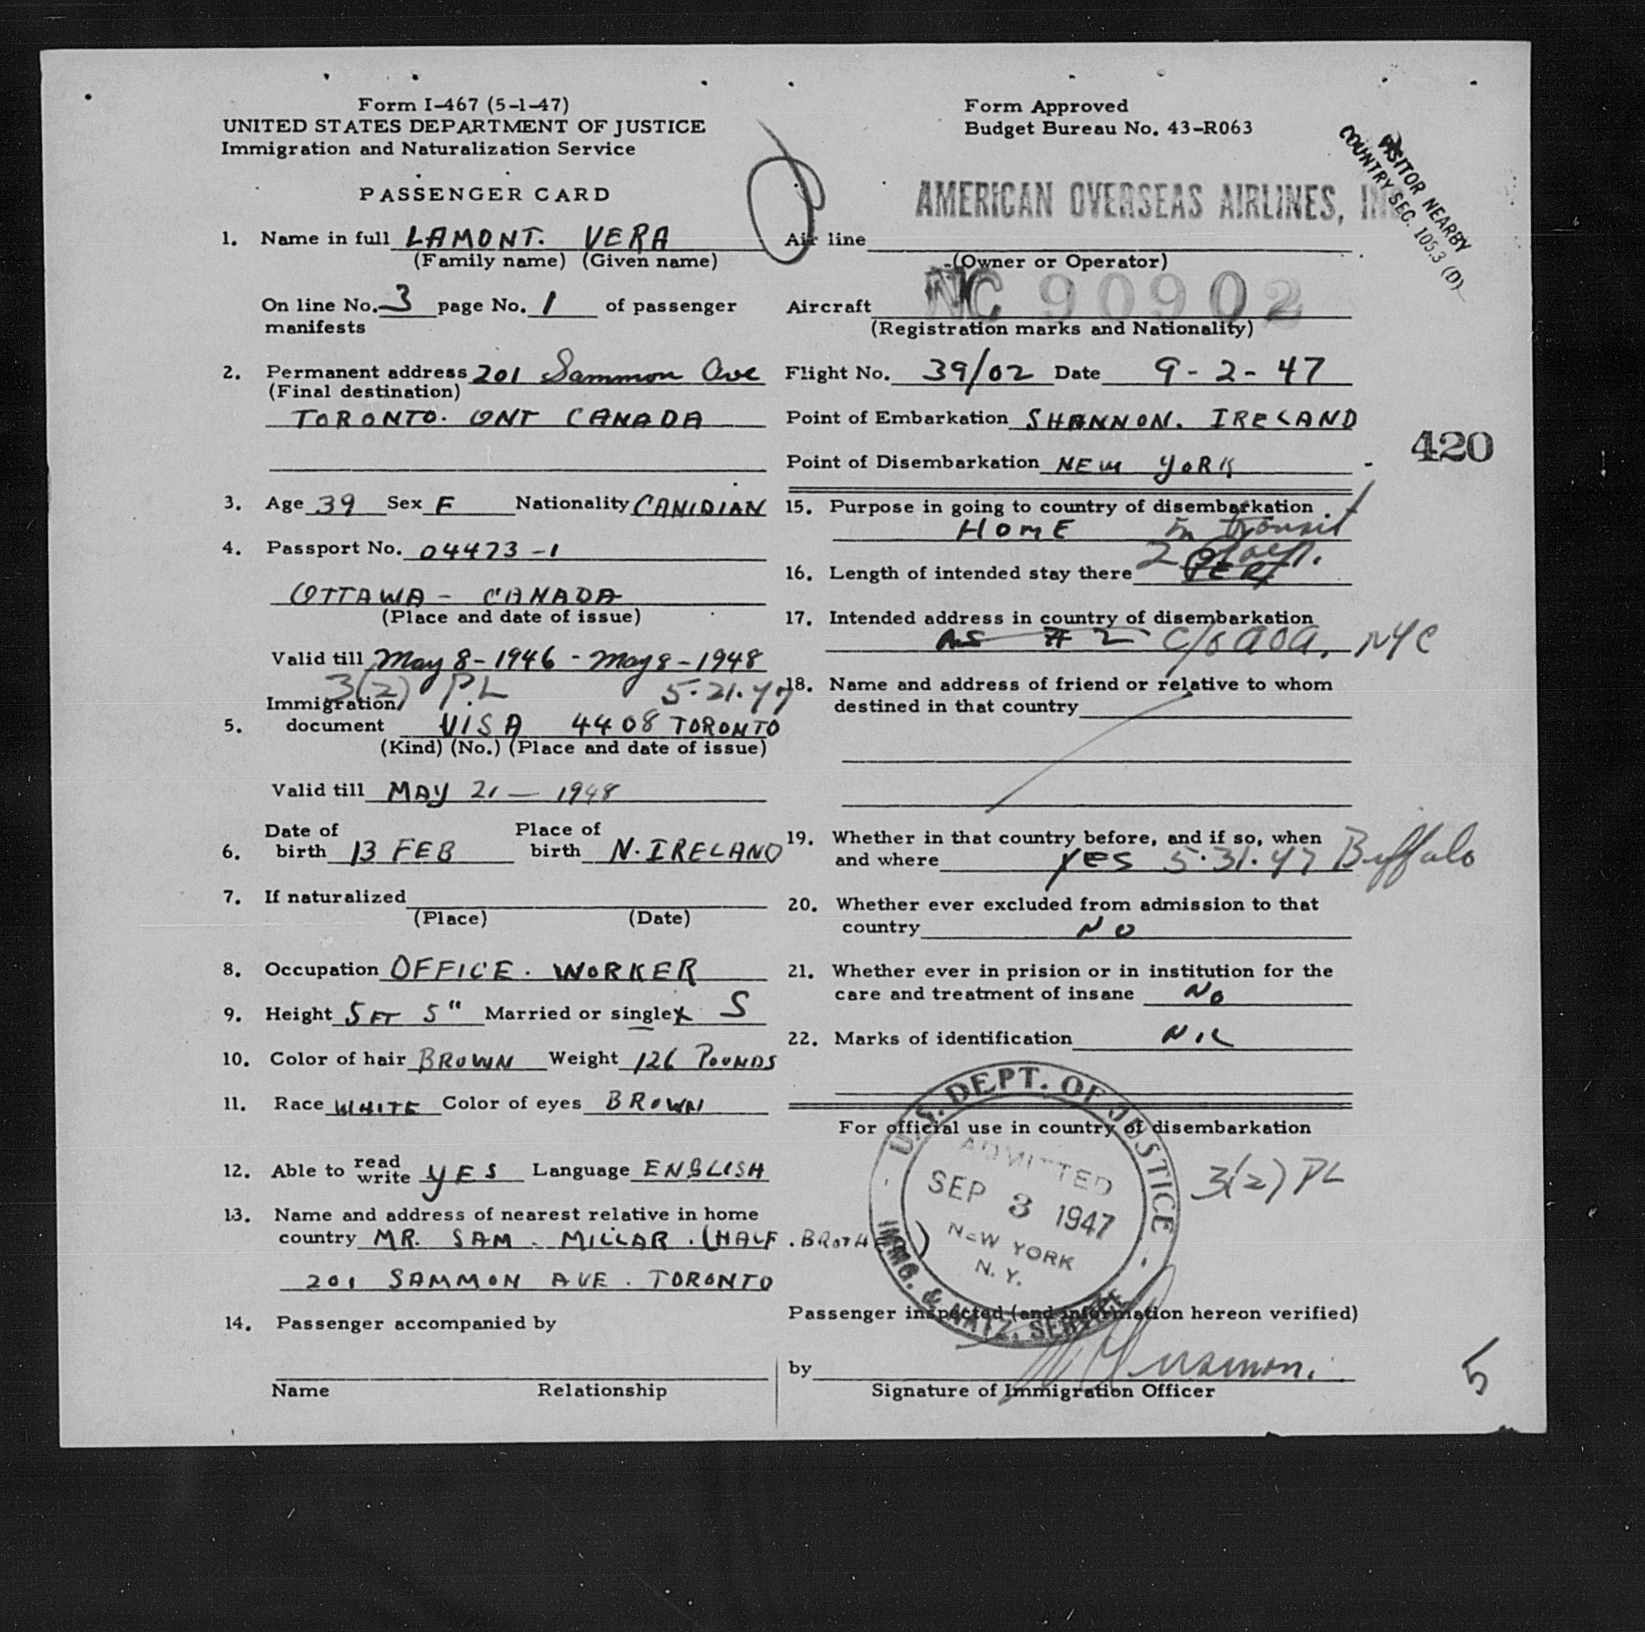 Form I-467 (5-1-47)
UNITED STATES DEPARTMENT OF JUSTICE
Immigration and Naturalization Service
PASSENGER CARD
1. Name in full LAMONT. VERA
(Family name) (Given name)
On line No. 3 page No. 1 of passenger
manifests
2. Permanent address 201 Sammon Ave
(Final destination)
TORONTO. ONT CANADA
3. Age 39 Sex F Nationality CANIDIAN
4. Passport No. 04473-1
OTTAWA - CANADA
(Place and date of issue)
Valid till May 8-1946 - May 8-1948
3(2) PL 5.21.47
Immigration
5. document VISA 4408 TORONTO
(Kind) (No.) (Place and date of issue)
Valid till MAY 21 - 1948
Date of Place of
6. birth 13 FEB birth N. IRELAND
7. If naturalized
(Place) (Date)
8. Occupation OFFICE. WORKER
9. Height 5 FT 5" Married or single S
10. Color of hair BROWN Weight 126 POUNDS
11. Race WHITE Color of eyes BROWN
12. Able to read write YES Language ENGLISH
13. Name and address of nearest relative in home
country MR. SAM. MILLAR. (HALF. BROTHER)
201 SAMMON AVE. TORONTO
14. Passenger accompanied by
Name Relationship
Form Approved
Budget Bureau No. 43-R063
VISITOR NEARBY
COUNTRY SEC. 105.3 (D)
AMERICAN OVERSEAS AIRLINES, INC
Air line
(Owner or Operator)
Aircraft NC 90902
(Registration marks and Nationality)
Flight No. 39/02 Date 9-2-47
Point of Embarkation SHANNON. IRELAND
420
Point of Disembarkation NEW YORK
15. Purpose in going to country of disembarkation
HOME in transit
16. Length of intended stay there 2
17. Intended address in country of disembarkation
AS # 2 c/o AOA. NYC
18. Name and address of friend or relative to whom
destined in that country
19. Whether in that country before, and if so, when
and where YES 5.31.47 Buffalo
20. Whether ever excluded from admission to that
country NO
21. Whether ever in prision or in institution for the
care and treatment of insane No
22. Marks of identification NIL
For official use in country of disembarkation
U.S. DEPT. OF JUSTICE
ADMITTED
SEP 3 1947
NEW YORK
N.Y.
IMMG. & NATZ. SERVICE
3(2) PL
Passenger inspected (and information hereon verified)
by
Signature of Immigration Officer
5